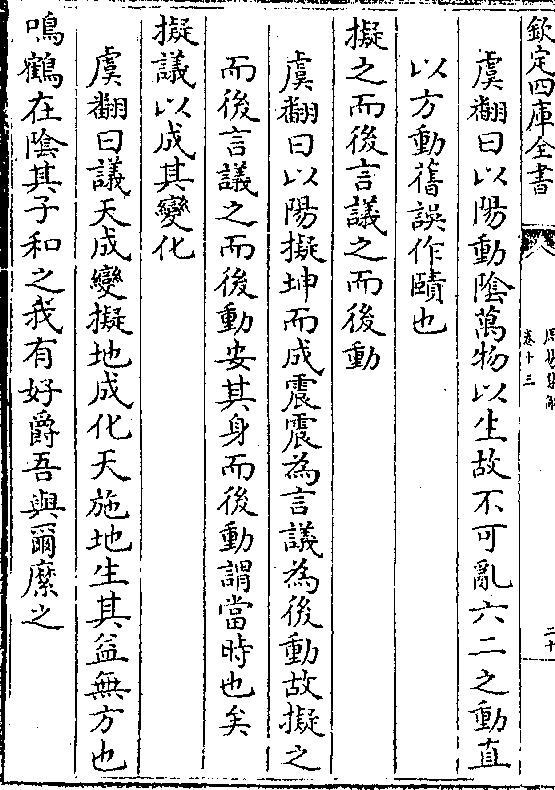 欽定四庫全書
周易集解
卷十三
二十
虞翻曰以陽動隂萬物以生故不可亂六二之動直
以方動舊誤作賾也
擬之而後言議之而後動
虞翻曰以陽擬坤而成震震為言議為後動故擬之
而後言議之而後動安其身而後動謂當時也矣
擬議以成其變化
虞翻曰議天成變擬地成化天施地生其益無方也
鳴鶴在隂其子和之我有好爵吾與爾縻之